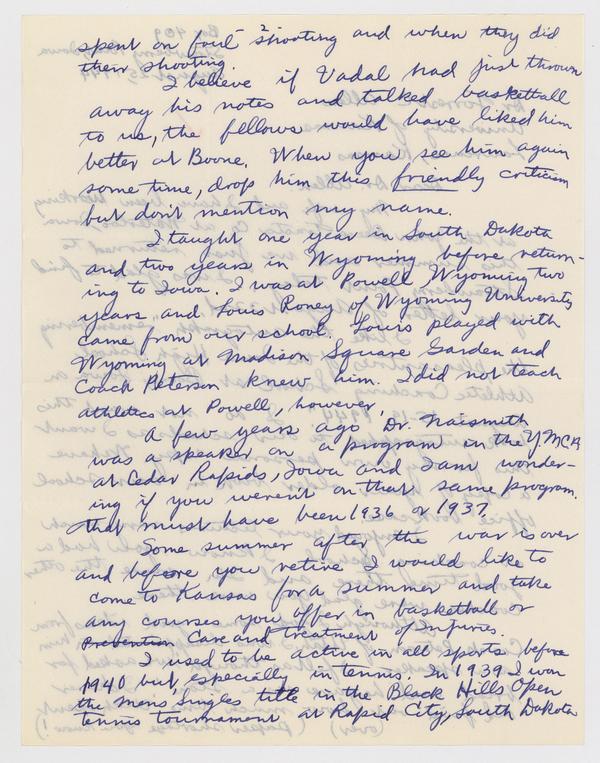 spent on foul shooting and when they did
their shooting.
I believe if Vadal had just thrown
away his notes and talked basketball
to us, the fellows would have liked him
better at Boone. When you see him again
some time, drop him this friendly criticism
but don't mention my name.
I taught one year in South Dakota
and two years in Wyoming before return-
ing to Iowa. I was at Powell, Wyoming two
years and Louis Roney of Wyoming University
came from our school. Louis played with
Wyoming at Madison Square Garden and
Coach Peterson knew him. I did not teach
athletics at Powell, however,
A few years ago Dr. Naismith
was a speaker on a program in the YMCA
at Cedar Rapids, Iowa and I am wonder-
ing if you weren't on that same program.
That must have been 1936 or 1937.
Some summer after the war is over
and before you retire I would like to
come to Kansas for a summer and take
any courses you offer in basketball or
Prevention Care and treatment of injuries.
I used to be active in all sports before
1940 but, especially in tennis. In 1939 I won
the mens singles title in the Black Hills Open
tennis tournament at Rapid City, South Dakota